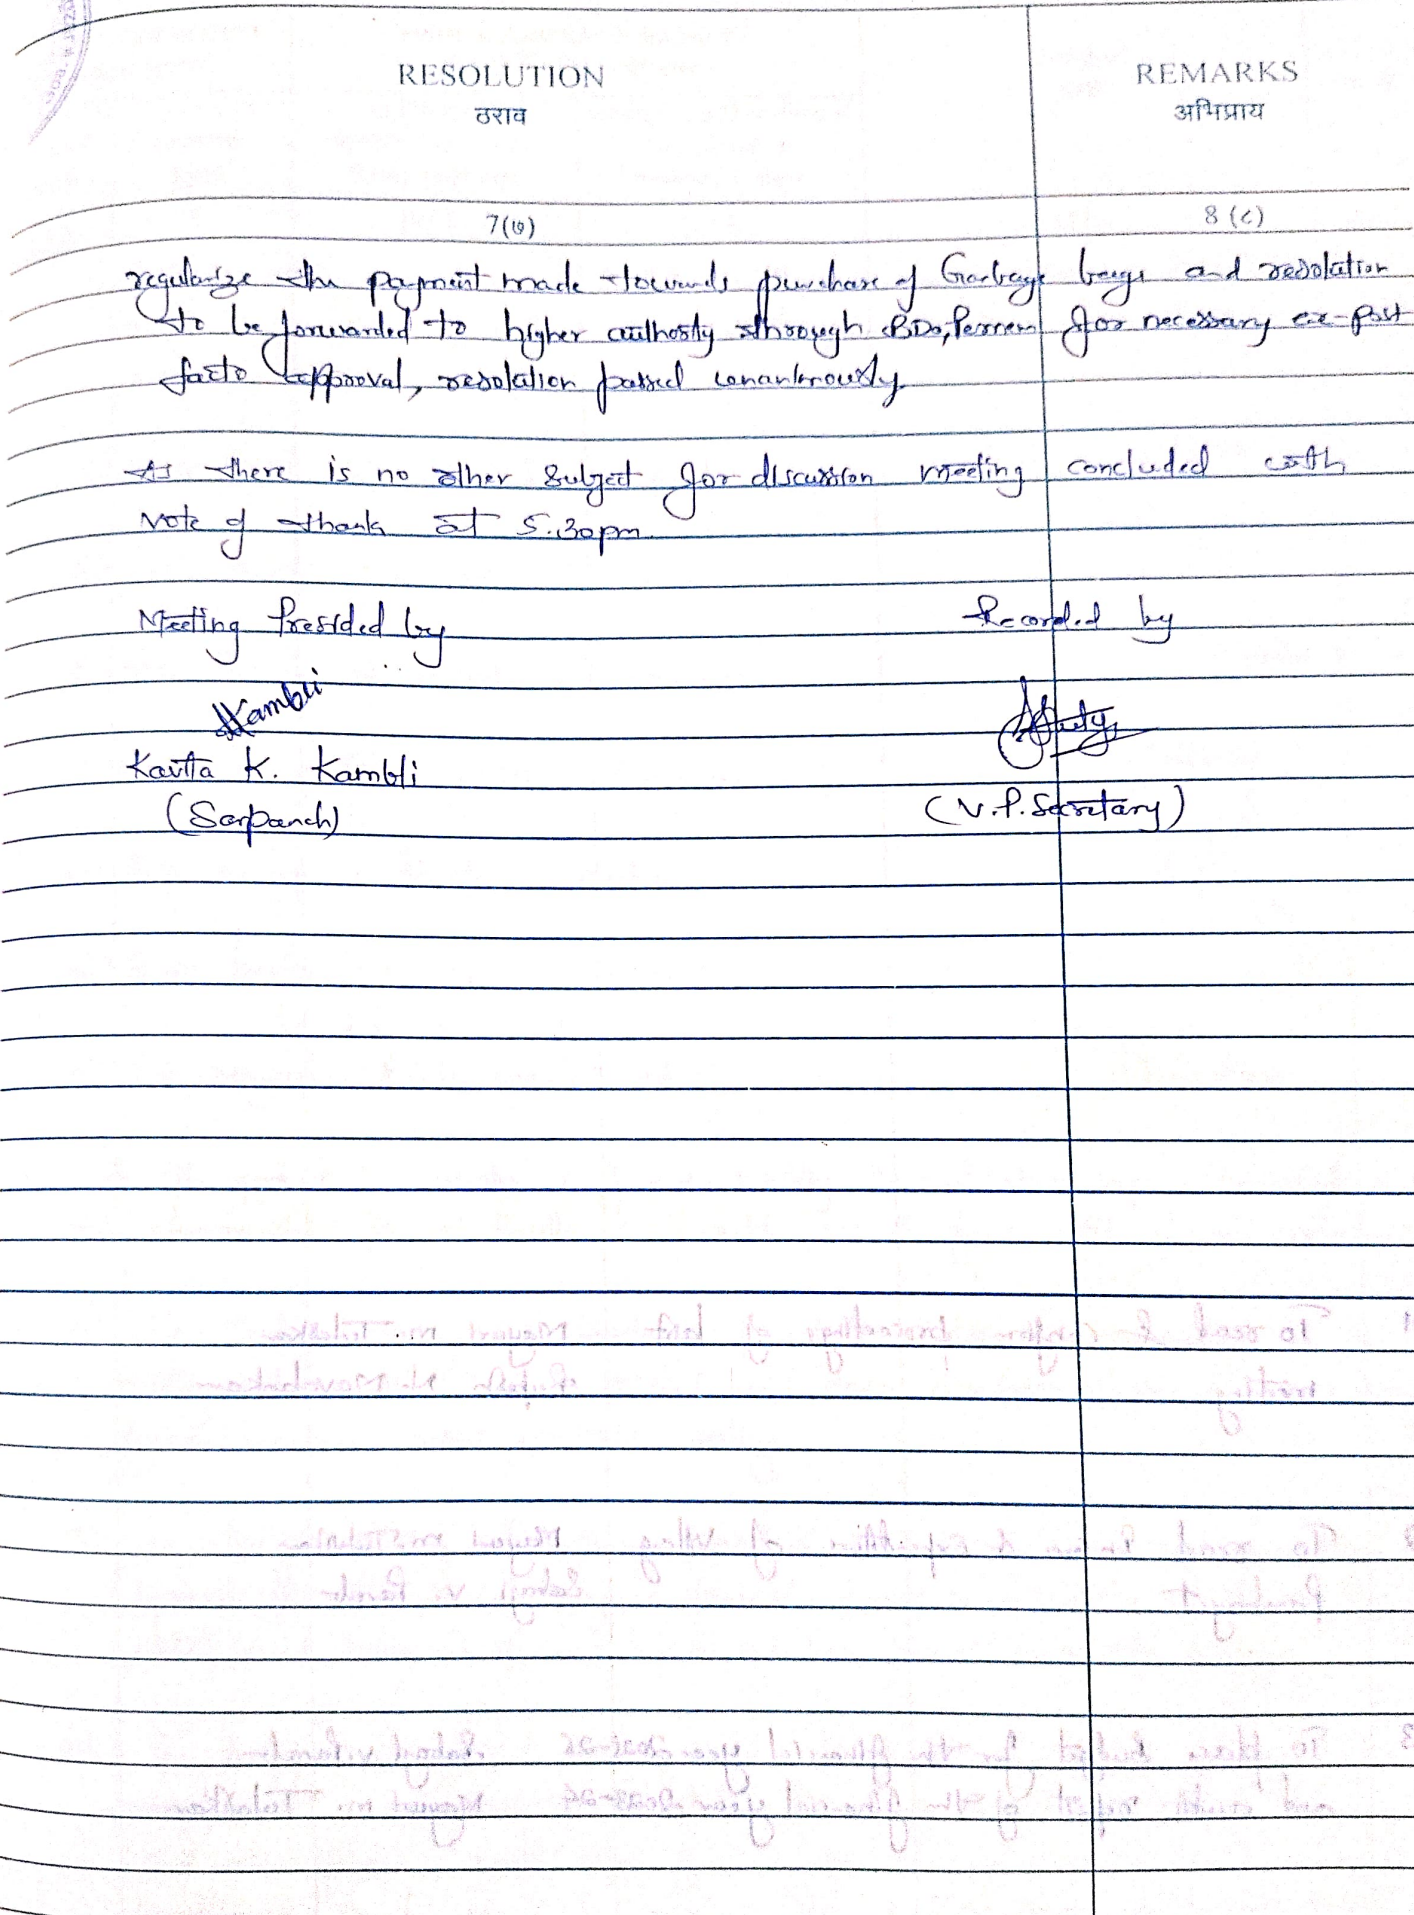 RESOLUTION
ठराव
REMARKS
अभिप्राय
7(७)
8 (८)
regularize the payment made towards purchase of Garbage bags and resolation
to be forwarded to higher authority through BDO, Pernem for necessary ex-post
facto approval, resolation passed unanimously.
As there is no other subject for discussion meeting concluded with
Vote of thank at 5.30pm.
Meeting Presided by
Recorded by
Kambli
Kavita K. Kambli
(Sarpanch)
(V.P. Secretary)